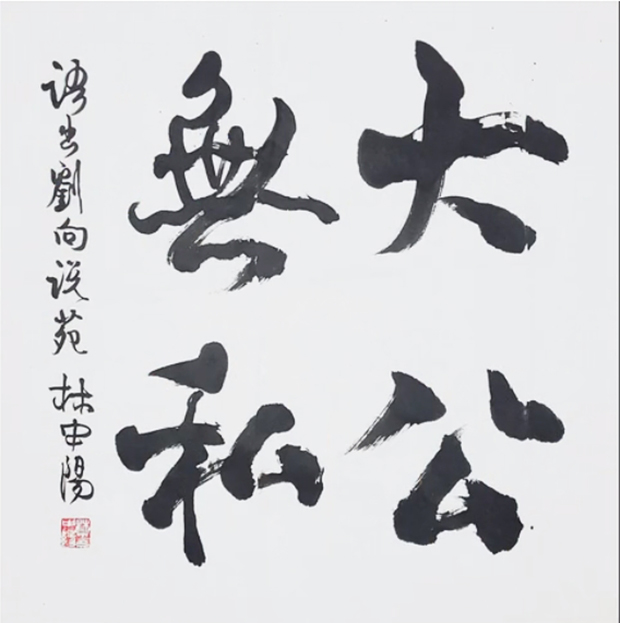 大公
無私
語出劉向说苑 林中陽